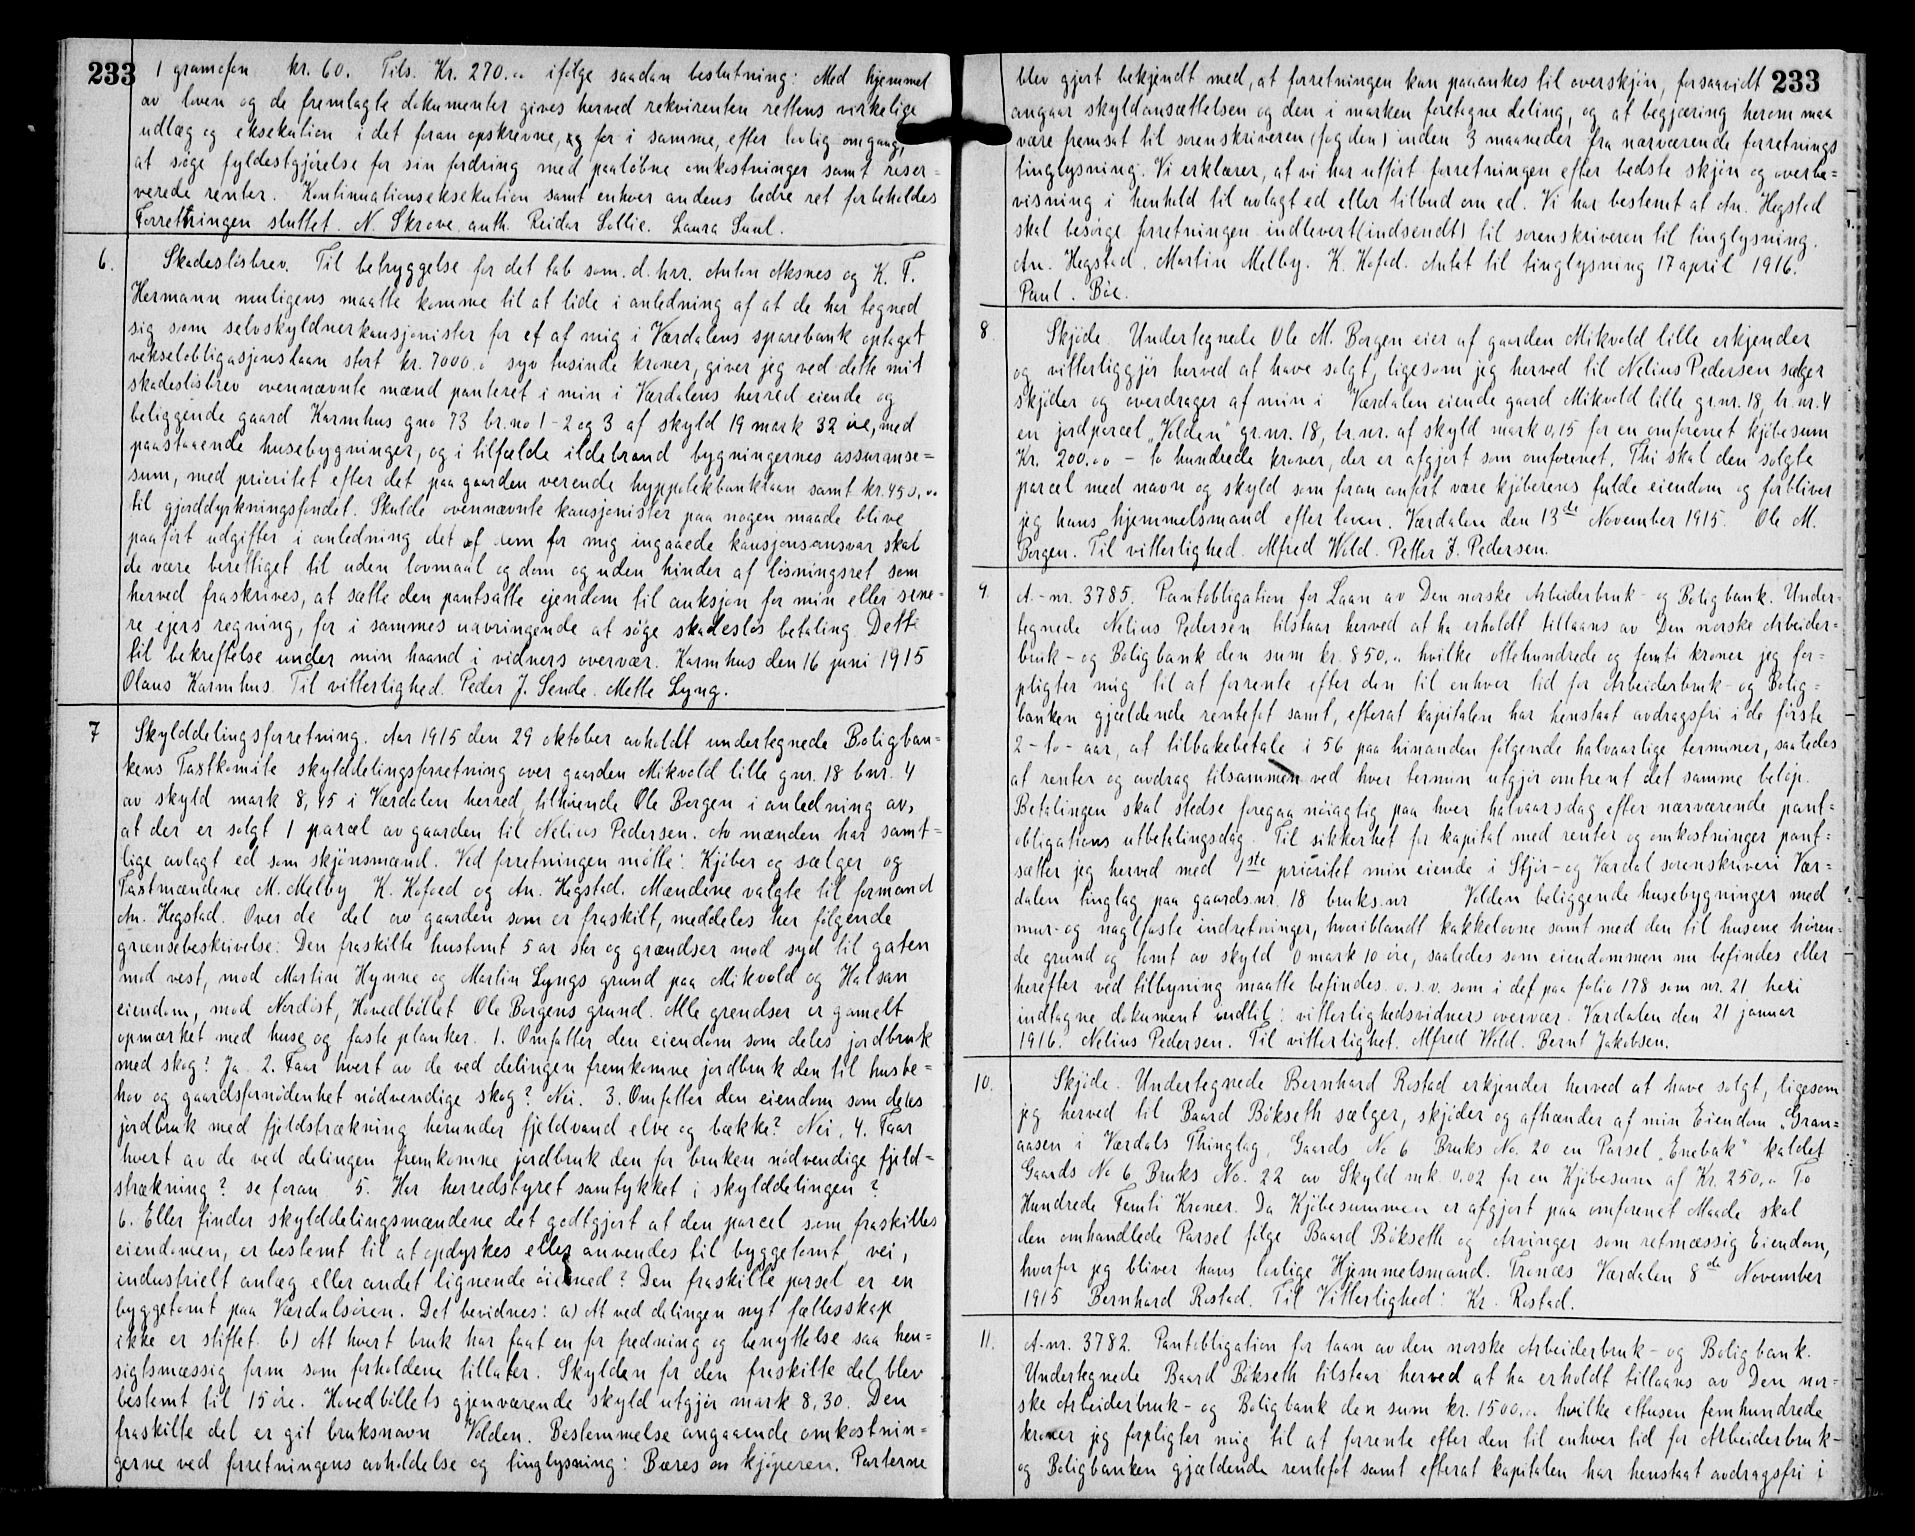 233
1 gramofon kr. 60. Tils. Kr. 270.oo ifølge saadan beslutning: Med hjemmel
av loven og de fremlagte dokumenter gives herved rekvirenten rettens virkelige
udlæg og eksekution i det foran opskrevne, og for i samme, efter lovlig omgang,
at søge fyldestgjørelse for sin fordring med paaløbne omkostninger samt reser-
verede renter. Kontinuationseksekution samt enhver andens bedre ret forbeholdes
Forretningen sluttet. N. Skrove auth. Reidar Sollie. Laura Suul.
6. Skadesløsbrev. Til betryggelse for det tab som d. hrr. Anton Aksnes og K. F.
Hermann muligens maatte komme til at lide i anledning af at de har tegned
sig som selvskyldnerkausjonister for et af mig i Værdalens sparebank optaget
vekselobligasjonslaan stort kr. 7000.o syv tusinde kroner, giver jeg ved dette mit
skadesløsbrev ovennævnte mænd panteret i min i Værdalens herred eiende og
beliggende gaard Karmhus gno 73 br.no 1-2 og 3 af skyld 19 mark 32 øre, med
paastaaende husebygninger, og i tilfælde ildebrand bygningernes assuranse=
sum, med prioritet efter det paa gaarden værende hyppotekbanklaan samt kr. 450,oo
til gjorddyrkningsfondet. Skulde ovennævnte kausjonister paa nogen maade blive
paaført udgifter i anledning det af dem for mig ingaaede kausjonsansvar skal
de være berettiget til uden lovmaal og dom og uden hinder af løsningsret som
herved fraskrives, at sætte den pantsatte ejendom til auksjon for min eller sene-
re ejers regning, for i sammes udbringende at søge skadesløs betaling. Dette
til bekreftelse under min haand i vidners overvær. Karmhus den 16 juni 1915
Olaus Karmhus. Til vitterlighed. Peder J. Sende. Mette Lyng.
7 Skylddelingsforretning. Aar 1915 den 29 oktober avholdt undertegnede Boligban-
kens Takstkomite skylddelingsforretning over gaarden Mikvold lille gnr. 18 bnr. 4
av skyld mark 8,45 i Værdalen herred, tilhørende Ole Borgen i anledning av,
at der er solgt 1 parcel av gaarden til Nelius Pedersen. Av mænden har samt-
lige avlagt ed som skjønsmænd. Ved forretningen møtte: Kjøber og sælger og
Takstmændene M. Melby K. Kofoed og An. Hegstad. Mændene valgte til formand
An. Hegstad. Over de del av gaarden som er fraskilt, meddeles her følgende
grænsebeskrivelse: Den fraskilte hustomt 5 ar stor og grændser mod syd til gaten
mod vest, mod Martin Hynne og Martin Lyngs grund paa Mikvold og Halsan
eiendom, mod Nordøst, Hovedbøllet Ole Borgens grund. Alle grendser er gamelt
opmærket med huse og faste planker. 1. Omfatter den eiendom som deles jordbruk
med skog? Ja. 2. Faar hvert av de ved delingen fremkomne jordbruk den til husbe-
hov og gaardsfornødenhet nødvendige skog? Nei. 3. Omfatter den eiendom som deles
jordbruk med fjeldstrækning herunder fjeldvand elve og bække? Nei. 4. Faar
hvert av de ved delingen fremkomne jordbruk den for bruken nødvendige fjeld-
strækning? se foran 5. Har herredstyret samtykket i skylddelingen?
6. Eller finder skylddelingsmændene det godtgjort at den parcel som fraskilles
eiendomen, er bestemt til at opdyrkes eller anvendes til byggetomt, vei,
industrielt anlæg eller andet lignende øiemed? Den fraskilte parsel er en
byggetomt paa Værdalsøren. Det bevidnes: a) At ved delingen nyt fællesskap
ikke er stiftet. b) At hvert bruk har faat en for fredning og benyttelse saa hen-
sigtsmæssig form som forholdene tillater. Skylden for den fraskilte del blev
bestemt til 15 øre. Hovedbøllets gjenværende skyld utgjør mark 8,30. Den
fraskilte del er git bruksnavn Volden. Bestemmelse angaaende omkostnin-
gerne ved forretningens avholdelse og tinglysning: Bæres av kjøperen. Parterne
233
blev gjort bekjendt med, at forretningen kan paaankes til overskjøn, forsaavidt
angaar skyldansættelsen og den i marken foretagne deling, og at begjæring herom maa
være fremsat til sorenskriveren (fogden) inden 3 maaneder fra nærværende forretnings
tinglysning. Vi erklærer, at vi har utført forretningen efter bedste skjøn og overbe-
visning i henhold til avlagt ed eller tilbud om ed. Vi har bestemt at An. Hegstad
skal besørge forretningen indlevert (indsendt) til sorenskriveren til tinglysning.
An. Hegstad. Martin Melby. K. Kofod. Antat til tinglysning 17 april 1916.
Paul. Bøe.
8 Skjøde. Undertegnede Ole M. Borgen eier af gaarden Mikvold lille erkjender
og vitterliggjør herved at have solgt, ligesom jeg herved til Nelius Pedersen sælger
skjøder og overdrager af min i Værdalen eiende gaard Mikvold lille gr.nr. 18, br.nr. 4
en jordparcel „Volden“ gr.nr. 18, br.nr. af skyld mark 0,15 for en omforenet kjøbesum
Kr. 200.oo - to hundrede kroner, der er afgjort som omforenet. Thi skal den solgte
parcel med navn og skyld som foran anført være kjøberens fulde eiendom og forbliver
jeg hans hjemmelsmand efter loven. Værdalen den 13de November 1915. Ole M.
Borgen. Til vitterlighed. Alfred Wold. Petter J. Pedersen.
9. A.-nr. 3785. Pantobligation for Laan av Den norske Arbeiderbruk- og Boligbank. Under-
tegnede Nelius Pedersen tilstaar herved at ha erholdt tillaans av Den norske Arbeider-
bruk- og Boligbank den sum kr. 850.o hvilke ottehundrede og femti kroner jeg for-
pligter mig til at forrente efter den til enhver tid for Arbeiderbruk- og Bolig-
banken gjældende rentefot samt, efterat kapitalen har henstaat avdragsfri i de første
2 - to - aar, at tilbakebetale i 56 paa hinanden følgende halvaarlige terminer, saaledes
at renter og avdrag tilsammen ved hver termin utgjør omtrent det samme beløp.
Betalingen skal stedse foregaa nøiagtig paa hver halvaarsdag efter nærværende pant-
obligations utbetalingsdag. Til sikkerhet for kapital med renter og omkostninger pant-
sætter jeg herved med 1ste prioritet min eiende i Stjør- og Værdal sorenskriveri Vær-
dalen tinglag paa gaards.nr. 18 bruks.nr Volden beliggende husebygninger med
mur- og naglfaste indretninger, hvoriblandt kakkelovne samt med den til husene høren-
de grund og tomt av skyld 0 mark 10 øre, saaledes som eiendommen nu befindes eller
herefter ved tilbyning maatte befindes. o.s.v. som i det paa folio 178 som nr. 21 heri
indtagne dokument indtil: vitterlighedsvidners overvær. Værdalen den 21 januar
1916. Nelius Pedersen. Til vitterlighet. Alfred Wold. Bernt Jakobsen.
10. Skjøde. Undertegnede Bernhard Rostad erkjender herved at have solgt, ligesom
jeg herved til Baard Bökseth sælger, skjøder og afhænder af min Eiendom „Gran=
aasen i Værdals Thinglag, Gaards No 6 Bruks No. 20 en Parsel „Enebak“ kaldet
Gaards No 6 Bruks No. 22 av Skyld mk. 0.02 for en Kjøbesum af Kr. 250,o To
Hundrede Femti Kroner. Da Kjøbesummen er afgjort paa omforenet Maade skal
den omhandlede Parsel følge Baard Bökseth og Arvinger som retmæssig Eiendom,
hvorfor jeg bliver hans lovlige Hjemmelsmand. Trones Værdalen 8de November
1915 Bernhard Rostad. Til Vitterlighed: Kr. Rostad.
11. A-nr. 3782. Pantobligation for laan av den norske Arbeiderbruk- og Boligbank.
Undertegnede Baard Bökseth tilstaar herved at ha erholdt tillaans av Den nor-
ske Arbeiderbruk- og Boligbank den sum kr. 1500.oo hvilke ettusen femhundrede
kroner jeg forpligter mig til at forrente efter den til enhver tid for Arbeiderbruk-
og Boligbanken gjældende rentefot samt efterat kapitalen har henstaat avdragsfri i